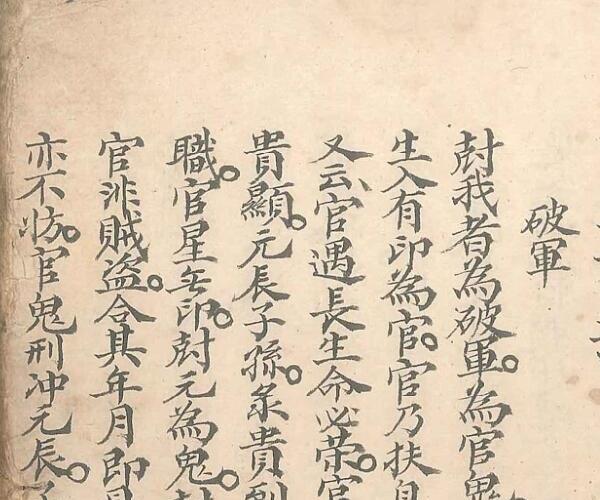 破軍
尅我者為破軍。為官鬼
生入有印為官。官乃扶身
又云、官遇長生命必荣。官
貴顯。元辰子孫。系貴
職。官星无印。尅元為鬼。尅
官非賊盗。合其年月即
亦不妨。官鬼刑冲元辰。